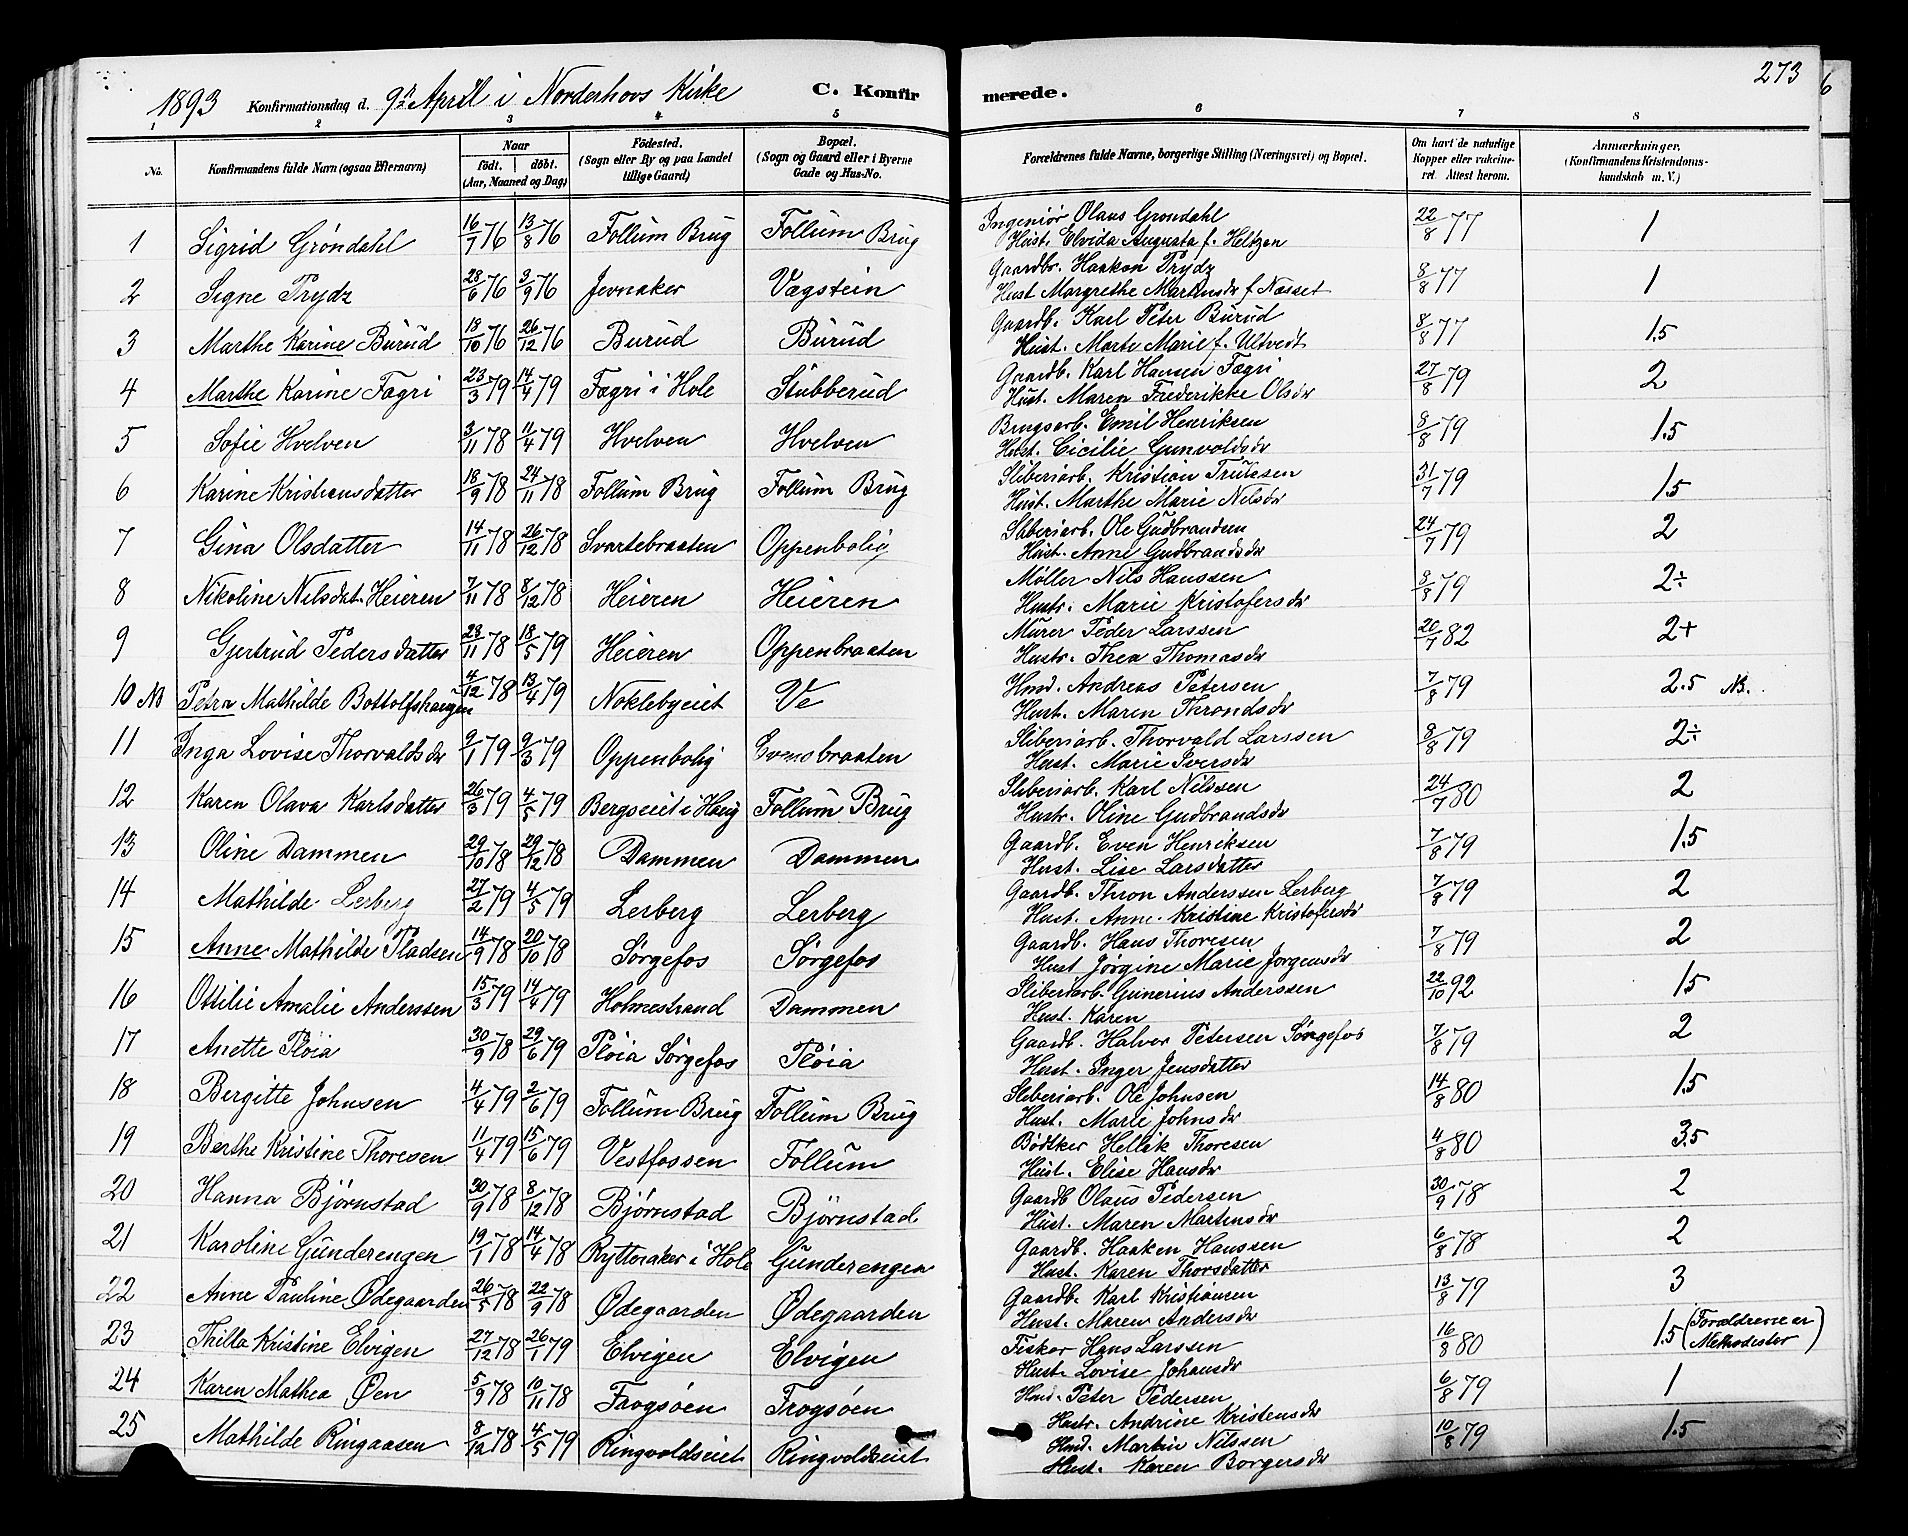 273
1893 Konfirmationsdag d. 9de April i Norderhovs Kirke C. Konfirmerede.
1 2 3 4 5 6 7 8
No. Konfirmandens fulde Navn (ogsaa Efternavn) Naar födt. döbt. (Aar, Maaned og Dag) Födested. (Sogn eller By og paa Landet tillige Gaard) Bopæl. (Sogn og Gaard eller i Byerne Gade og Hus-No. Forældrenes fulde Navne, borgerlige Stilling (Næringsvei) og Bopæl. Om havt de naturlige Kopper eller vakcineret. Attest herom. Anmærkninger, (Konfirmandens Kristendomskundskab m. V.)
1 Sigrid Gröndahl 16/7 76 13/8 76 Follum Brug Follum Brug Ingeniør Olaus Grondahl 22/8 77 1
Hust. Elvida Augusta f. Heltzen
2 Signe Prydz 28/6 76 3/9 76 Jevnaker Vægstein Gaardbr. Haakon Prydz 8/8 77 1
Hust Margrethe Martinsdr f. Næsset
3 Marthe Karine Burud 18/10 76 26/12 76 Burud Burud Gaardb. Karl Peter Burud 8/8 77 1.5
Hust. Marte Marie f. Ultvedt
4 Marthe Karine Fagri 23/3 79 14/4 79 Fægri i Hole Stubberud Gaardb. Karl Hansen Fægri 27/8 79 2
Hust. Maren Frederikke Olsdr
5 Sofie Hvelven 3/11 78 11/4 79 Hvelven Hvelven Brugsarb. Emil Henriksen 8/8 79 1.5
Hust. Cicilie Gunvoldsdr
6 Karine Kristiansdatter 18/9 78 24/11 78 Follum Brug Follum Brug Sliberiarb. Kristian Trulsen 31/7 79 1.5
Hust. Marthe Marie Nilsdr
7 Gina Olsdatter 14/11 78 26/12 78 Svartebraaten Oppenbolig Sliberiarb. Ole Gudbrandsen 24/7 79 2
Hust. Anne Gudbrandsdr
8 Nikoline Nilsdat. Heieren 7/11 78 8/12 78 Heieren Heieren Møller Nils Hanssen 8/8 79 2÷
Hustr. Marie Kristofersdr
9 Gjertrud Pedersdatter 28/11 78 18/5 79 Heieren Oppenbraaten Murer Peder Larssen 20/7 82 2+
Hustr. Thea Thomasdr
10 NB Petra Mathilde Bottolfshaugen 4/12 78 13/4 79 Noklebyeiet Ve Hmd. Andreas Petersen 7/8 79 2.5 NB.
Hust. Maren Throndsdr
11 Inga Lovise Thorvaldsdr 9/1 79 9/3 79 Oppenbolig Evensbraaten Sliberiarb. Thorvald Larssen 8/8 79 2÷
Hust. Marie Iversdr
12 Karen Olava Karlsdatter 26/3 79 4/5 79 Bergseiet i Haug Follum Brug Sliberiarb. Karl Nilssen 24/7 80 2
Hustr. Oline Gudbrandsdr
13 Oline Dammen 29/10 78 29/12 78 Dammen Dammen Gaardb. Even Henriksen 7/8 79 1.5
Hust. Lise Larsdatter
14 Mathilde Lerberg 27/2 79 4/5 79 Lerberg Lerberg Gaardb. Thron Anderssen Lerberg 7/8 79 2
Hust. Anne Kristine Kristofersdr
15 Anne Mathilde Pladsen 14/9 78 20/10 78 Sørgefos Sørgefos Gaardb. Hans Thoresen 7/8 79 2
Hust Jörgine Marie Jorgensdr
16 Ottilie Amalie Anderssen 15/3 79 14/4 79 Holmestrand Dammen Sliberiarb. Gunerius Anderssen 22/10 92 1.5
Hust. Karen
17 Anette Pløia 30/9 78 29/6 79 Pløia Sørgefos Pløia Gaardb. Halvor Petersen Sørgefos 7/8 79 2
Hust. Inger Jensdatter
18 Bergitte Johnsen 4/4 79 2/6 79 Follum Brug Follum Brug Sliberiarb. Ole Johnsen 14/8 80 1.5
Hust. Marie Johnsdr
19 Berthe Kristine Thoresen 11/4 79 15/6 79 Vestfossen Follum Bødtker Hellik Thoresen 4/8 80 3.5
Hust. Elise Hansdr
20 Hanna Bjørnstad 30/9 78 8/12 78 Bjørnstad Bjørnstad Gaardb Olaus Pedersen 30/9 78 2
Hust. Maren Martinsdr
21 Karoline Gunderengen 19/1 78 14/4 78 Ryttoraker i Hole Gunderengen Gaardb. Haaken Hanssen 6/8 78 2
Hust. Karen Thorsdatter
22 Anne Pauline Ødegaarden 26/5 78 22/9 78 Ødegaarden Ødegaarden Gaardb. Karl Kristiansen 13/8 79 3
Hust. Maren Andersdr
23 Thilla Kristine Elvigen 27/12 78 26/1 79 Elvigen Elvigen Fisker Hans Larssen 16/8 80 1.5 (Forældrene er Methodister)
Hust. Lovise Johansdr
24 Karen Mathea Øen 5/9 78 10/11 78 Frogsøen Frogsøen Hmd. Peter Pedersen 6/8 79 1
Hustr. Andrine Kristensdr
25 Mathilde Ringaasen 8/12 78 4/5 79 Ringvoldseiet Ringvoldseiet Hmd. Martin Nilssen 10/8 79 1.5
Hust. Karen Borgersdr